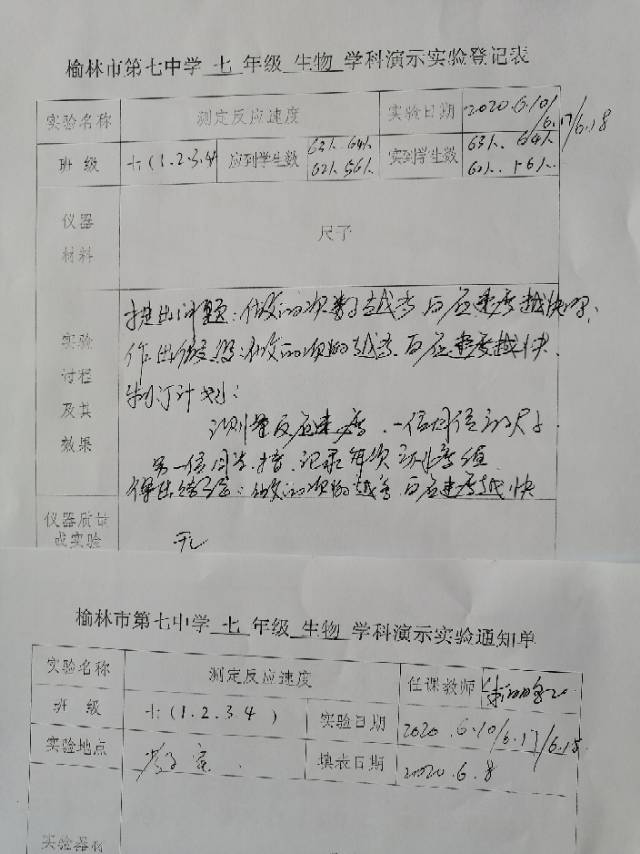 榆林市第七中学 七 年级 生物 学科演示实验登记表
实验名称 测定反应速度 实验日期 2020.6.10/6.17/6.18
班 级 七(1.2.3.4 应到学生数 63人 64人 实到学生数 63人 64人
62人 56人 60人 56人
仪器
材料
尺子
提出问题:做的次数越多反应速度越快吗
实验 作出假设:做的次数越多反应速度越快
过程 制订计划:
及其 测量反应速度、一位同位
效果 另一位同学 记录每次
得出结论:做的次数越多反应速度越快
仪器质量
或实验
无
榆林市第七中学 七 年级 生物 学科演示实验通知单
实验名称 测定反应速度 任课教师
班 级 七(1.2.3.4 ) 实验日期 2020.6.10/6.17/6.18
实验地点 教室 填表日期 2020.6.8
实验器材